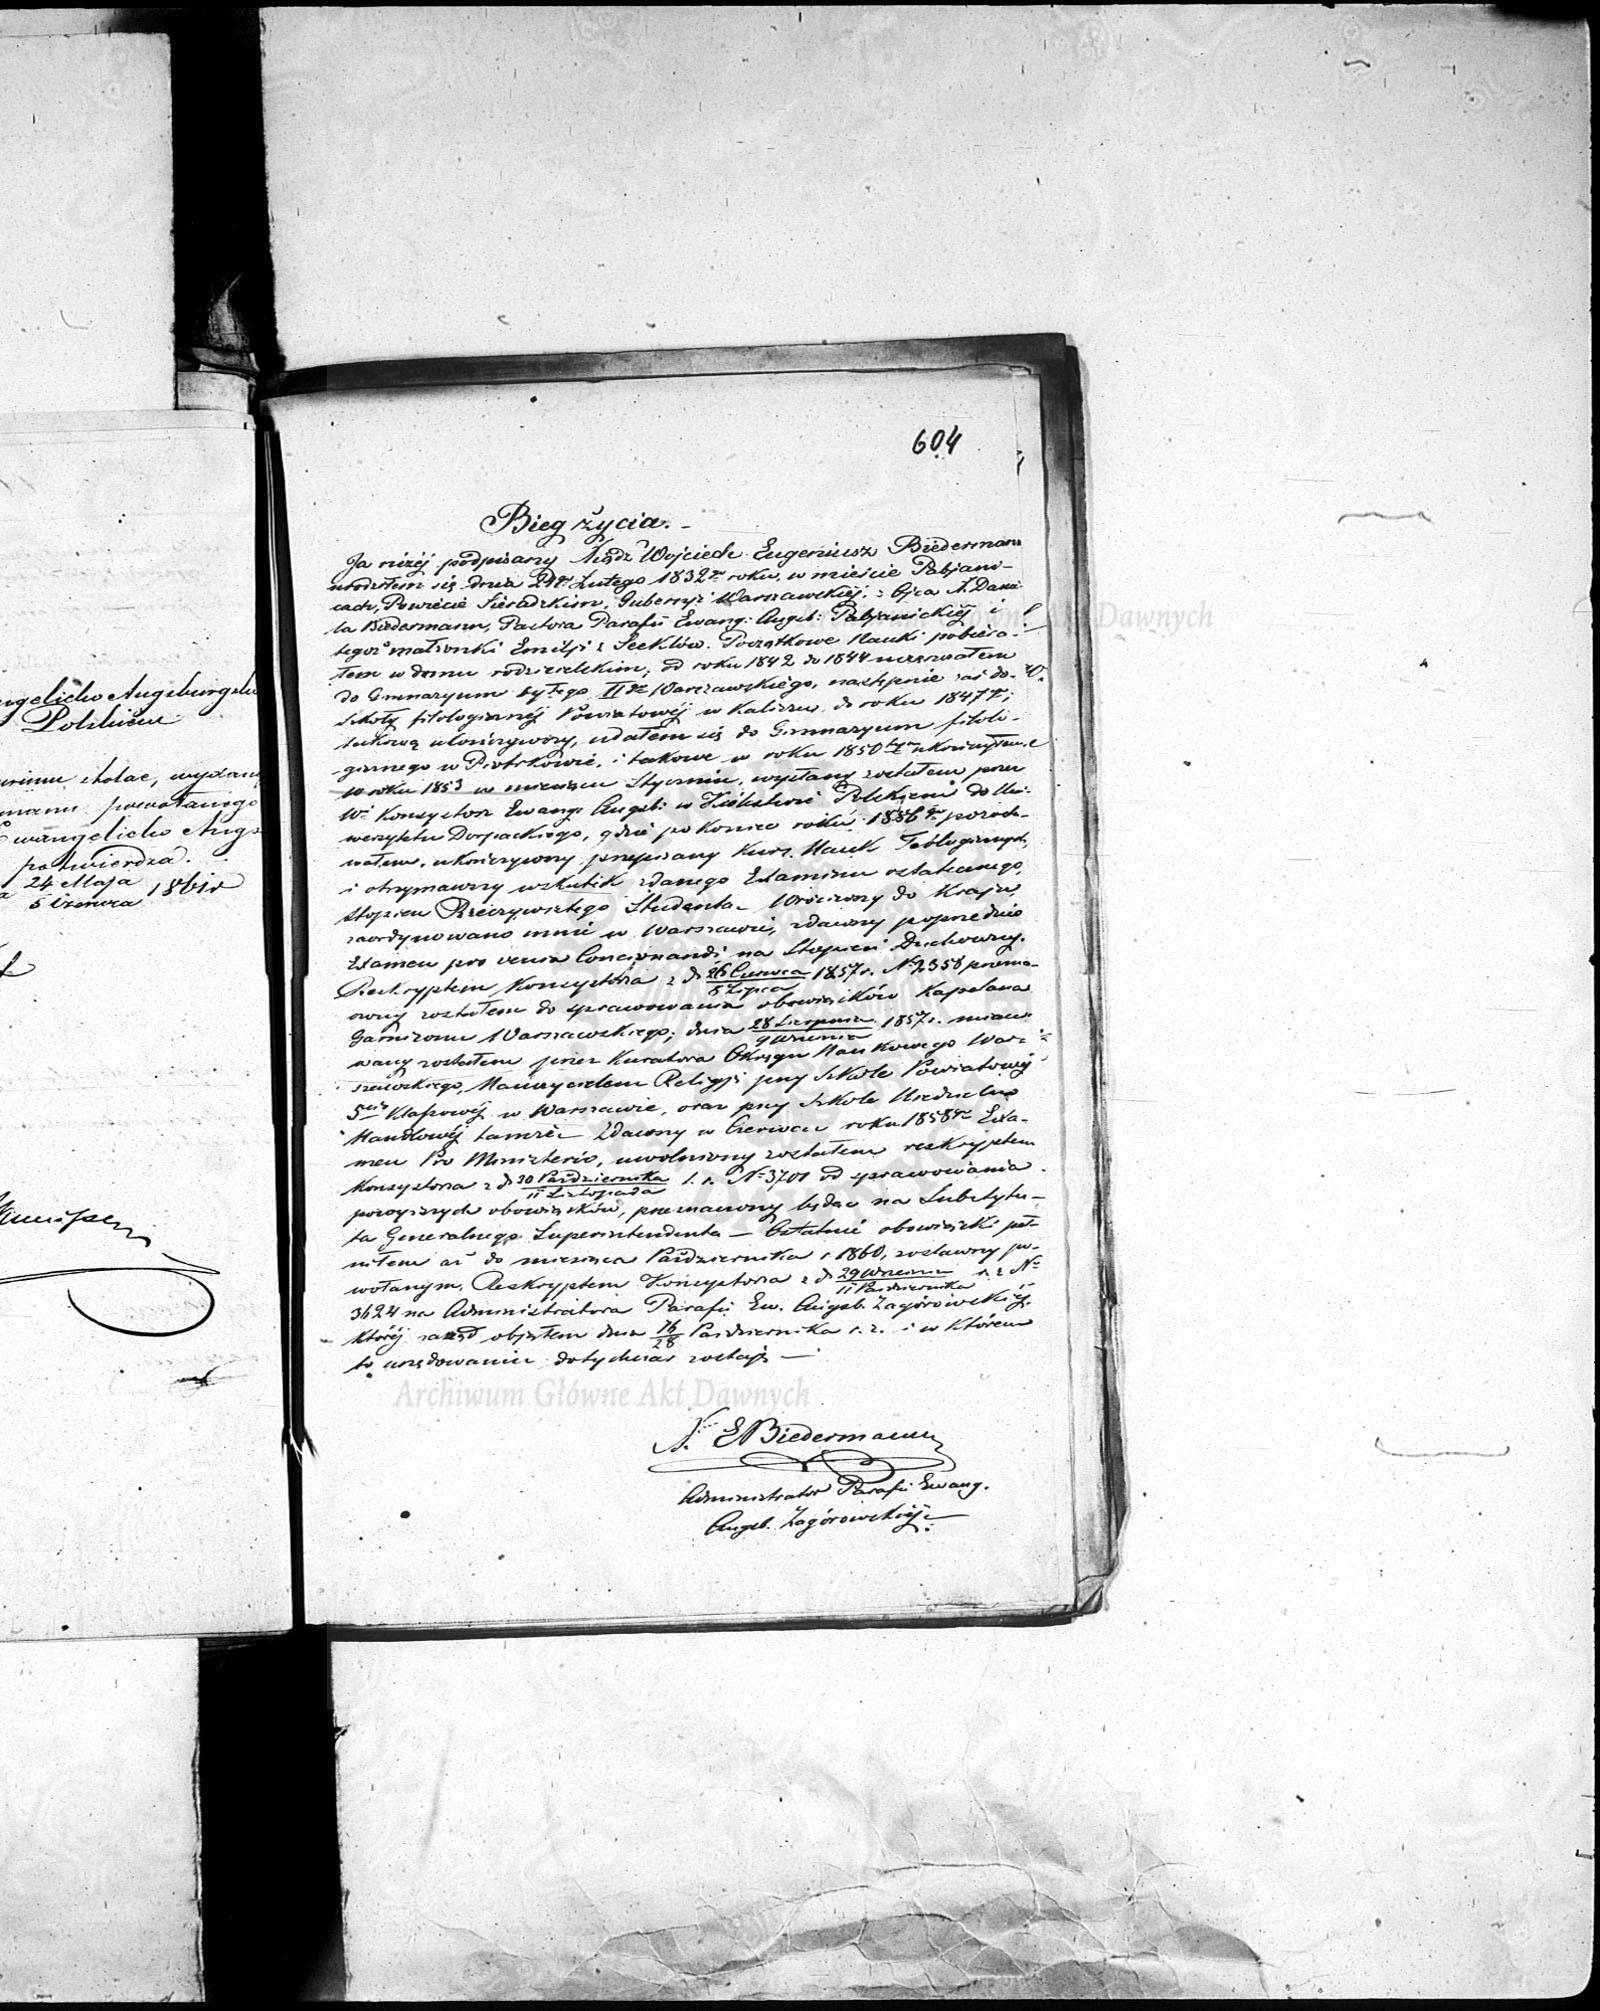 604
Bieg życia. -
Ja niżéj podpisany Xiądz Wojciech Eugeniusz Biedermann
urodziłem się dnia 24go Lutego 1832go roku, w mieście Pabjani-
cach, Powiecie Sieradzkim, Gubernji Warszawskiéj, z Ojca X. Danie-
la Biedermann, Pastora Parafii Ewang: Augsb: Pabjanickiéj i
tegoż małżonki Emilji z Seeklów. Początkowe Nauki pobiera-
łem w domu rodzicielskim, od roku 1842 do 1844 uczęszczałem
do Gimnazyum byłego IIgo Warszawskiego, następnie zaś do
Szkoły filologicznéj Powiatowéj w Kaliszu do roku 1847go;
takową ukończywszy, udałem się do Gimnazyum filolo-
gicznego w Piotrkowie, i takowe w roku 1850tym ukończyłem.
W roku 1853 w miesiącu Styczniu, wysłany zostałem przez
Wł. Konsystorz Ewang: Augsb: w Królestwie Polskiem do Uni-
wersytetu Dorpackiego, gdzie po koniec roku 1856go pozosta-
wałem, ukończywszy przepisany Kurs Nauk Teologicznych,
i otrzymawszy wskutek zdanego Examinu ostatecznego,
stopień Rzeczywistego Studenta - Wróciwszy do Kraju
zaordynowano mnie w Warszawie, zdawszy poprzednio
Examen pro venia Concionandi na Stopień Duchowny.
Reskryptem Konsystorza z d. 26 Czerwca / 8 Lipca 1857 r. No 2358 przezna-
czony zostałem do sprawowania obowiązków Kapelana
Garnizonu Warszawskiego; dnia 28 Sierpnia / 9 Września 1857 r. miano-
wany zostałem przez Kuratora Okręgu Naukowego War-
szawskiego, Nauczycielem Religji przy Szkole Powiatowéj
5cio Klassowéj w Warszawie, oraz przy Szkole Niedzielno
Handlowéj tamże - Zdawszy w Czerwcu roku 1858go Exa-
men Pro Ministerio, uwolniony zostałem reskryptem
Konsystorza z d. 30 Października / 11 Listopada t. r. No 3701 od sprawowania
powyższych obowiązków, przeznaczony będąc na Substytu-
ta Generalnego Superintendenta - Ostatnie obowiązki peł-
niłem aż do miesiąca Października r. 1860, zostawszy po-
wołanym, Reskryptem Konsystorza z d. 29 Września / 11 Października r. z. No
3624 na Administratora Parafii Ew. Augsb. Zagórowskiéj,
któréj zarząd objąłem dnia 16/28 Października r. z. i w którem
to urzędowaniu dotychczas zostaję -
X. E Biedermann
Administrator Parafii Ewang.
Augsb. Zagórowskiéj.
Archiwum Główne Akt Dawnych
ngelicko Augsburgsko
Polskiém
powołanego
Ewangelicko Augs
potwierdza.
24 Maja
5 Czerwca 1861 r